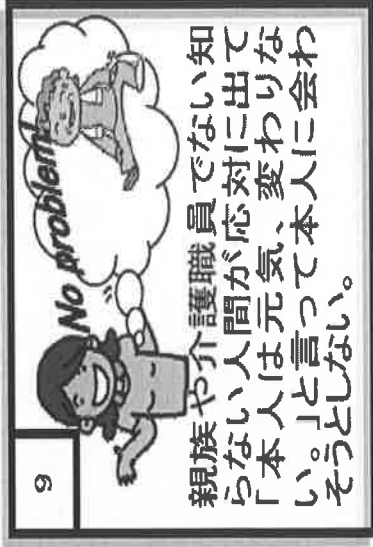 9
No problem!
親族や介護職員でない知
らない人間が応対に出て
「本人は元気、変わりな
い。」と言って本人に会わ
そうとしない。